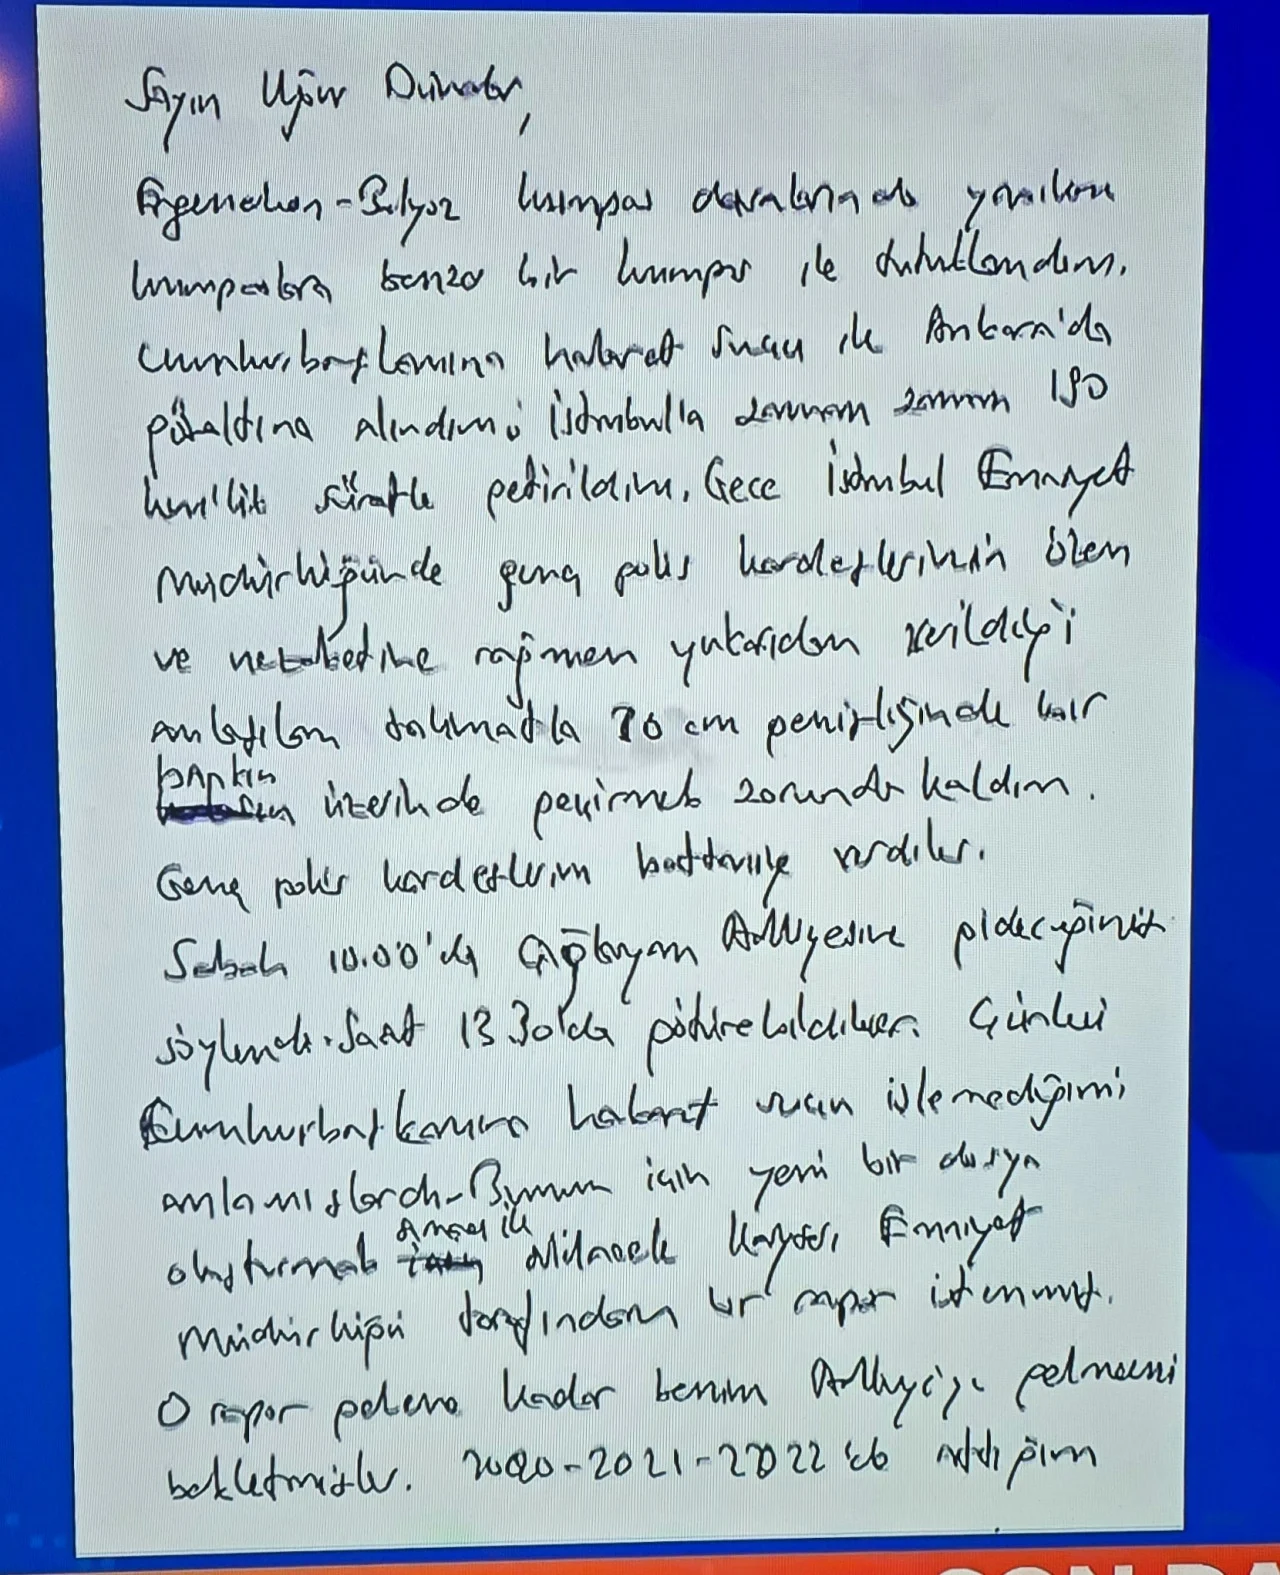 Sayın Uğur Dündar,
Ergenekon-Balyoz kumpas davalarında yapılan
kumpaslara benzer bir kumpas ile tutuklandım.
Cumhurbaşkanına hakaret suçu ile Ankara'da
gözaltına alındım; İstanbul'a zaman zaman 190
km'lik süratle getirildim. Gece İstanbul Emniyet
Müdürlüğünde genç polis kardeşlerimin özen
ve nezaketine rağmen yukarıdan verildiği
anlaşılan talimatla 70 cm genişliğinde bir
bankın üzerinde geçirmek zorunda kaldım.
Genç polis kardeşlerim battaniye verdiler.
Sabah 10.00'da Çağlayan Adliyesine gideceğimiz
söylendi. Saat 13.30'da götürebildiler. Çünkü
Cumhurbaşkanına hakaret suçu işlemediğimi
anlamışlardı. Bunun için yeni bir dosya
oluşturmak amacı ile alelacele Kayseri Emniyet
Müdürlüğü tarafından bir rapor istenmiş.
O rapor gelene kadar benim Adliyeye gelmemi
bekletmişler. 2020-2021-2022'de attığım